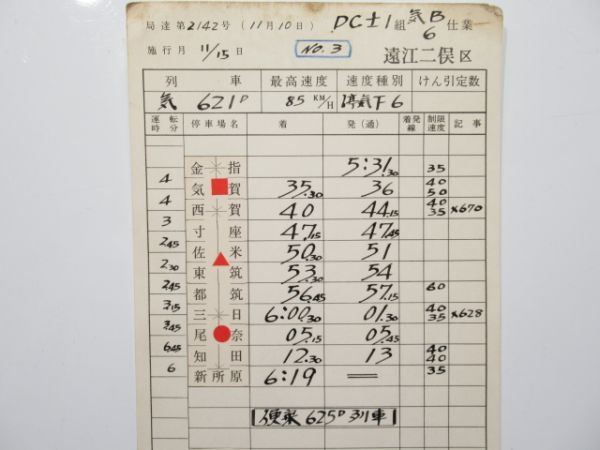 局達第2142号 (11月10日) DC士1組気B6仕業
施行月 11/15日 NO.3 遠江二俣区
列車 最高速度 速度種別 けん引定数
気 621D 85 KM/H 停気下6
運転時分 停車場名 着 発(通) 着発線 制限速度 記事
金指 5:31.30 35
4
気賀 35.30 36 40 50
4
西賀 40 44.15 40 35 ×670
3
寸座 47.15 47.45
2.45
佐米 50.30 51
2.30
東筑 53.30 54
2.45
都筑 56.45 57.15 60
3.15
三日 6:00.30 01.30 40 35 ×628
3.45
尾奈 05.15 05.45
6.45
知田 12.30 13 40 40
6
新所原 6:19 35
[便乗 625D 列車]